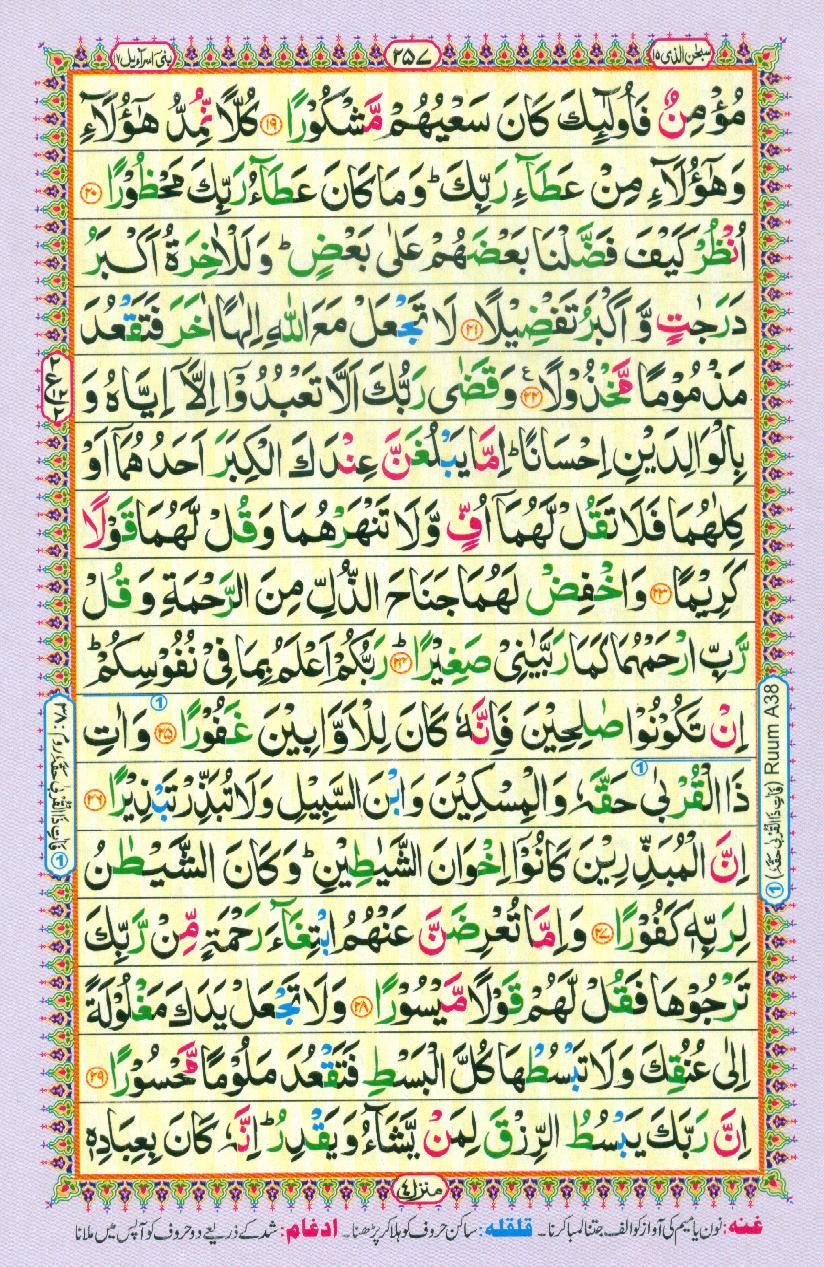 سبحن الذی ۱۵
۲۵۷
بنی اسرآءیل ۱۷
مُؤْمِنٌ فَاُولٰٓئِكَ كَانَ سَعْيُهُمْ مَّشْكُوْرًا ۝۱۹ كُلًّا نُّمِدُّ هٰٓؤُلَآءِ
وَهٰٓؤُلَآءِ مِنْ عَطَآءِ رَبِّكَ ؕ وَمَا كَانَ عَطَآءُ رَبِّكَ مَحْظُوْرًا ۝۲۰
اُنْظُرْ كَيْفَ فَضَّلْنَا بَعْضَهُمْ عَلٰى بَعْضٍ ؕ وَلَلْاٰخِرَةُ اَكْبَرُ
دَرَجٰتٍ وَّاَكْبَرُ تَفْضِيْلًا ۝۲۱ لَا تَجْعَلْ مَعَ اللّٰهِ اِلٰهًا اٰخَرَ فَتَقْعُدَ
مَذْمُوْمًا مَّخْذُوْلًا ۝۲۲ ع وَقَضٰى رَبُّكَ اَلَّا تَعْبُدُوْٓا اِلَّآ اِيَّاهُ وَ
بِالْوَالِدَيْنِ اِحْسَانًا ؕ اِمَّا يَبْلُغَنَّ عِنْدَكَ الْكِبَرَ اَحَدُهُمَآ اَوْ
كِلٰهُمَا فَلَا تَقُلْ لَّهُمَآ اُفٍّ وَّلَا تَنْهَرْهُمَا وَقُلْ لَّهُمَا قَوْلًا
كَرِيْمًا ۝۲۳ وَاخْفِضْ لَهُمَا جَنَاحَ الذُّلِّ مِنَ الرَّحْمَةِ وَقُلْ
رَّبِّ ارْحَمْهُمَا كَمَا رَبَّيٰنِيْ صَغِيْرًا ۝۲۴ؕ رَبُّكُمْ اَعْلَمُ بِمَا فِيْ نُفُوْسِكُمْ ؕ
اِنْ تَكُوْنُوْا صٰلِحِيْنَ فَاِنَّهٗ كَانَ لِلْاَوَّابِيْنَ غَفُوْرًا ۝۲۵ وَاٰتِ
ذَا الْقُرْبٰى حَقَّهٗ وَالْمِسْكِيْنَ وَابْنَ السَّبِيْلِ وَلَا تُبَذِّرْ تَبْذِيْرًا ۝۲۶
اِنَّ الْمُبَذِّرِيْنَ كَانُوْٓا اِخْوَانَ الشَّيٰطِيْنِ ؕ وَكَانَ الشَّيْطٰنُ
لِرَبِّهٖ كَفُوْرًا ۝۲۷ وَاِمَّا تُعْرِضَنَّ عَنْهُمُ ابْتِغَآءَ رَحْمَةٍ مِّنْ رَّبِّكَ
تَرْجُوْهَا فَقُلْ لَّهُمْ قَوْلًا مَّيْسُوْرًا ۝۲۸ وَلَا تَجْعَلْ يَدَكَ مَغْلُوْلَةً
اِلٰى عُنُقِكَ وَلَا تَبْسُطْهَا كُلَّ الْبَسْطِ فَتَقْعُدَ مَلُوْمًا مَّحْسُوْرًا ۝۲۹
اِنَّ رَبَّكَ يَبْسُطُ الرِّزْقَ لِمَنْ يَّشَآءُ وَيَقْدِرُ ؕ اِنَّهٗ كَانَ بِعِبَادِهٖ
① (فَاٰتِ ذَا الْقُرْبٰى حَقَّهٗ) Ruum A38
منزل ۴
غنه: نون یا میم کی آواز کو الف جتنا لمبا کرنا۔ قلقله: ساکن حروف کو ہلا کر پڑھنا۔ ادغام: شد کے ذریعے دو حروف کو آپس میں ملانا